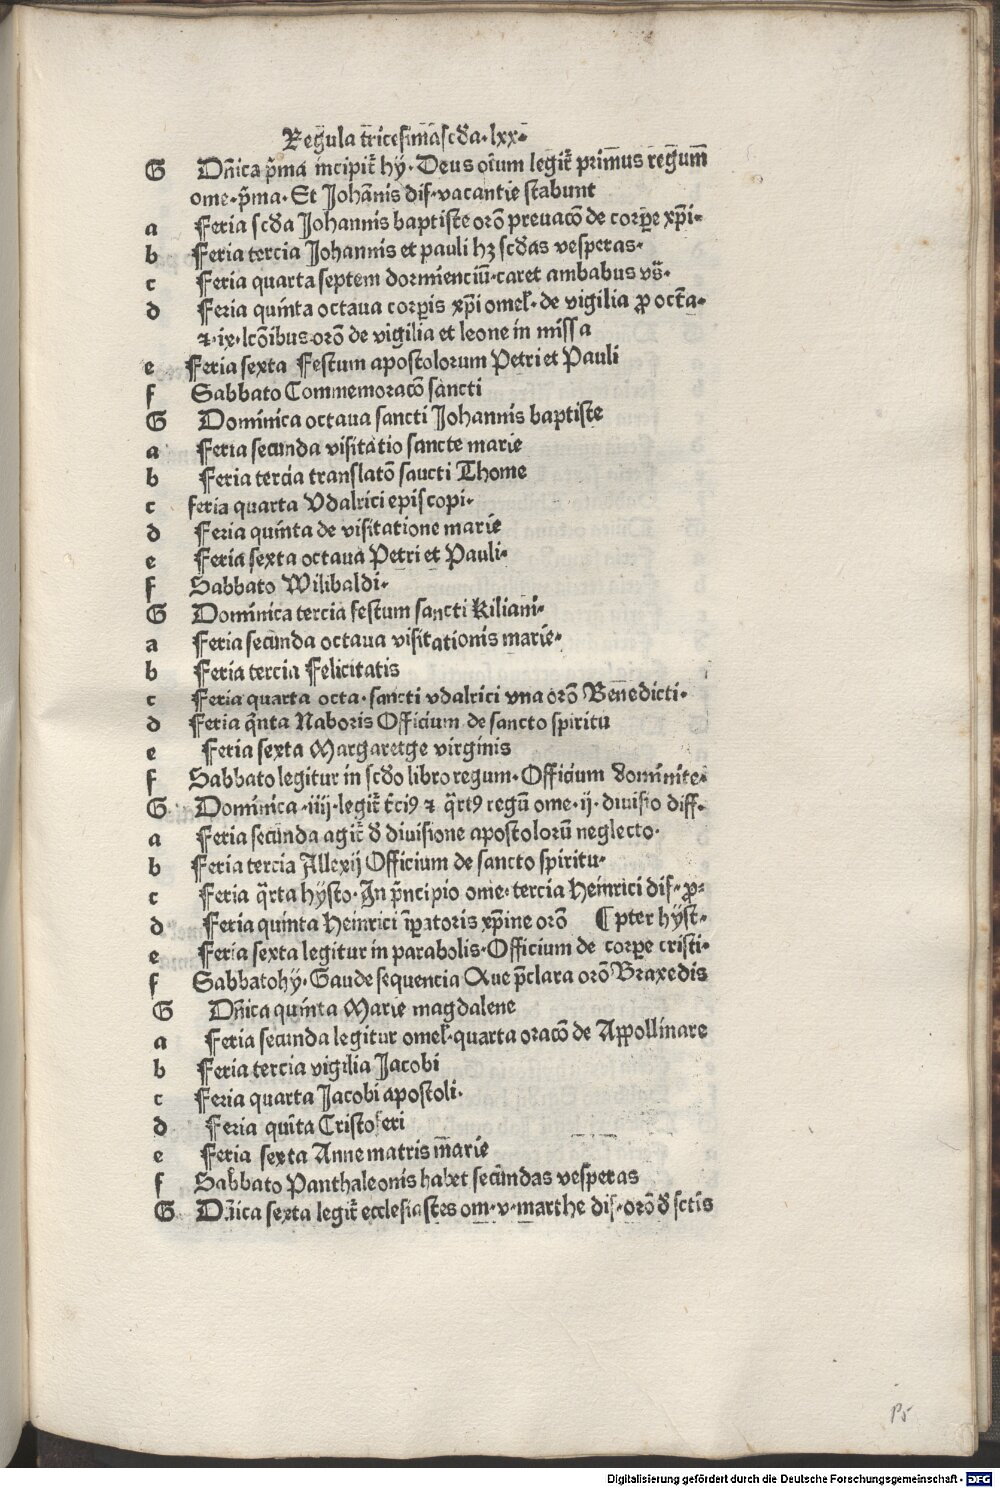 Regula tricesimascd̄a·lxx·
G Dn̄ica p̄ma incipit̄ hy̆·Deus oīum legit̄ primus regnum̄
ome·p̄ma·Et Johānis dis·vacantie stabunt
a Feria scd̄a Johannis baptiste orō prevacōe de corpe xp̄i·
b Feria tercia Johannis et pauli hz scd̄as vesperas·
c Feria quarta septem dormienciū·caret ambabus vs̄·
d Feria quinta octaua corpis xp̄i omel·de vigilia ꝓ oct̄a·
⁊·ix·lcōibus·orō de vigilia et leone in missa
e Feria sexta Festum apostolorum Petri et Pauli
f Sabbato Commemoracō sancti
G Dominica octaua sancti Johannis baptiste
a Feria secunda visitatio sancte marie
b Feria tercia translatō saucti Thome
c feria quarta Vdalrici episcopi·
d Feria quinta de visitatione marie
e Feria sexta octaua Petri et Pauli·
f Sabbato Wilibaldi·
G Dominica tercia festum sancti Kiliani·
a Feria secunda octaua visitationis marie·
b Feria tercia Felicitatis
c Feria quarta octa·sancti vdalrici vna orō Benedicti·
d Feria q̄nta Naboris Officium de sancto spiritu
e Feria sexta Margaretge virginis
f Sabbato legitur in scd̄o libro regum·Officium dominite·
G Dominica·iiij·legit̄ t̄ciꝰ ⁊ q̄rtꝰ regū ome·ij·diuisio diff·
a Feria secunda agit̄ d̄ diuisione apostolorū neglecto·
b Feria tercia Allexij Officium de sancto spiritu·
c Feria q̄rta hy̆sto·In p̄ncipio ome·tercia Heinrici dis·ꝓ⸗
d Feria quinta Heinrici īpatoris xp̄ine orō ¶pter hy̆st·
e Feria sexta legitur in parabolis·Officium de corpe cristi·
f Sabbato hy̆·Gaude sequencia Aue p̄clara orō Braxedis
G Dn̄ica quinta Marie magdalene
a Feria secunda legitur omel·quarta oracō de Appollinare
b Feria tercia vigilia Jacobi
c Feria quarta Jacobi apostoli·
d Feria quīta Cristoferi
e Feria sexta Anne matris marie
f Sabbato Panthaleonis habet secundas vesperas
G Dn̄ica sexta legit̄ ecclesiastes om·v·marthe dis·orō d̄ sctīs
P5
Digitalisierung gefördert durch die Deutsche Forschungsgemeinschaft - DFG